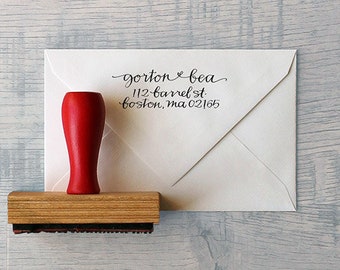 gorton bea
112 barrel st.
boston, ma 02165